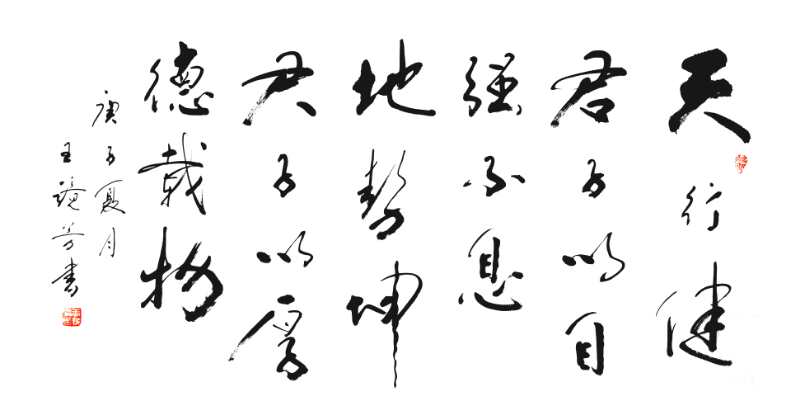 天行健
君子以自
強不息
地勢坤
君子以厚
德載物
庚子夏月
王鏡芳書